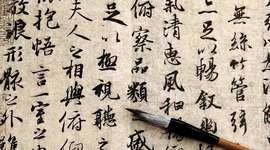 無絲竹管弦
足以暢敘幽
氣清惠風和
俯察品類
足以極視聽之
夫人之相與俯仰
抱悟言一室之
放浪形骸之外